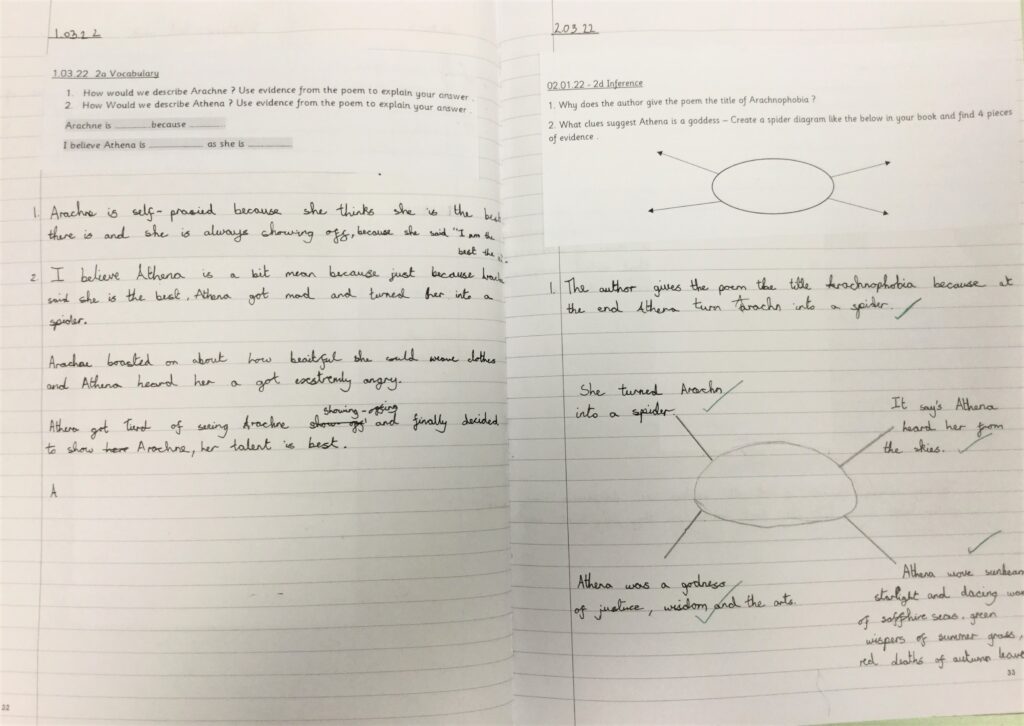 1.03.22
1.03.22 2a Vocabulary
1. How would we describe Arachne ? Use evidence from the poem to explain your answer .
2. How Would we describe Athena ? Use evidence from the poem to explain your answer .
Arachne is ________ because ________
I believe Athena is ____________ as she is __________
1. Arachne is self-prasied because she thinks she is the best
there is and she is always showing off, because she said "I am the
best the
2. I believe Athena is a bit mean because just because
said she is the best, Athena got mad and turned her into a
spider.
Arachne boasted on about how beaitful she could weave clothes
and Athena heard her a got exestremly angry.
showing-offing
Athena got turd of seeing Arachne show off and finally decided
to show here Arachne, her talent is best.
A
32
2.03.22
02.01.22 - 2d Inference
1. Why does the author give the poem the title of Arachnophobia ?
2. What clues suggest Athena is a goddess – Create a spider diagram like the below in your book and find 4 pieces
of evidence .
1. The author gives the poem the title Arachnophobia because at
the end Athena turn Arachn into a spider.
She turned Arachn
into a spider.
It say's Athena
heard her from
the skies.
Athena was a godness
of justuce, wisdom and the arts.
Athena wove sunbeam
starlight and dacing
of saffhire seas, green
wispers of summer grass,
red deaths of autumn leave
33